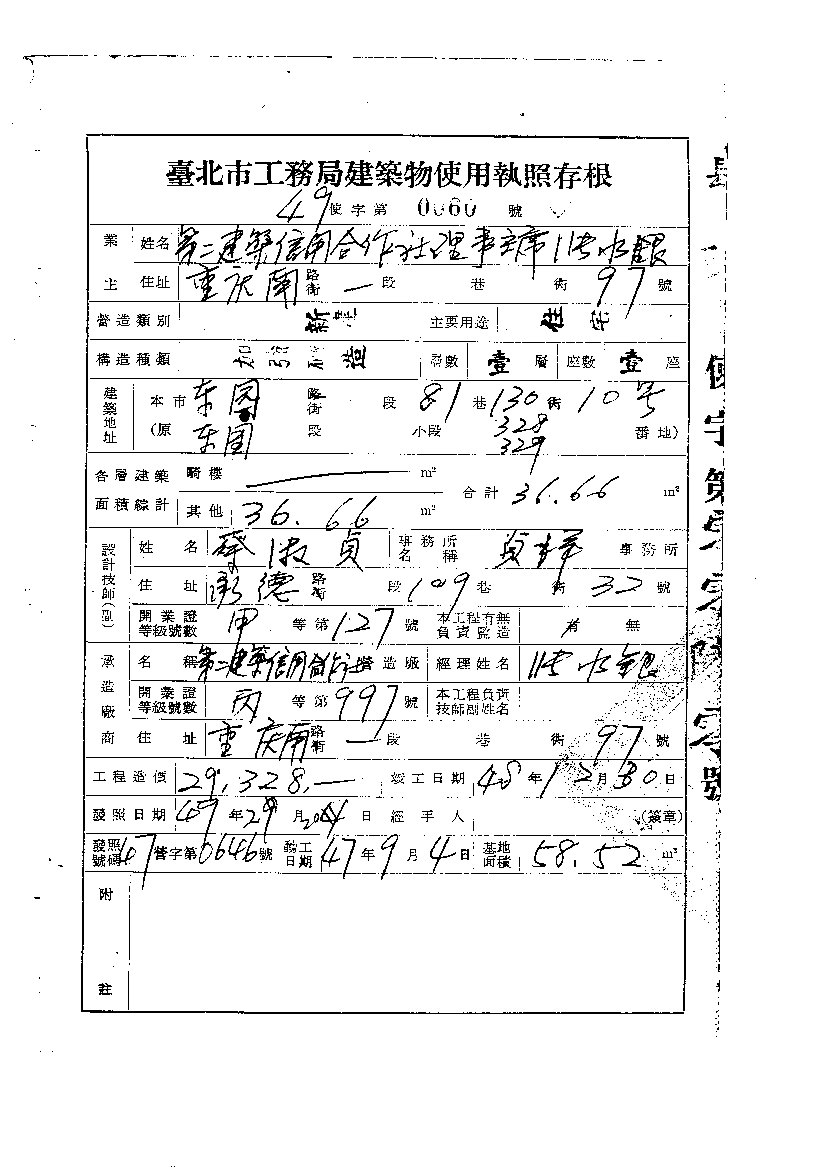 臺北市工務局建築物使用執照存根
49使字第 0060 號
業 姓名 第二建築信用合作社理事主席 水銀
主 住址 重庆南 路街 一段 巷 街 97 號
營造類別 新建 主要用途 住宅
構造種類 加強 造 層數 壹層 座數 壹座
建築地址 本市 东园 路街 段 81 巷 130 街 10号
(原 东园 段 小段 328 329 番地)
各層建築面積總計 騎樓 —— m² 合計 36.66 m²
其他 36.66 m²
設計技師(副) 姓名 蔡淑貞 事務所名稱 貞祥 事務所
住址 承德 路街 段 109 巷 街 32 號
開業證等級號數 甲 等第 127 號 本工程有無負責監造 有 無
承造廠商 名稱 第二建築信用合作社營造廠 經理姓名 水銀
開業證等級號數 丙 等第 997 號 本工程負責技師副姓名
住址 重庆南 路街 一段 巷 街 97 號
工程造價 29,328.— 竣工日期 48年12月30日
發照日期 49年 月 日 經手人 (簽章)
發照號碼 47營字第0646號 動工日期 47年9月4日 基地面積 58.52 m²
附註
使字第零零陸零號